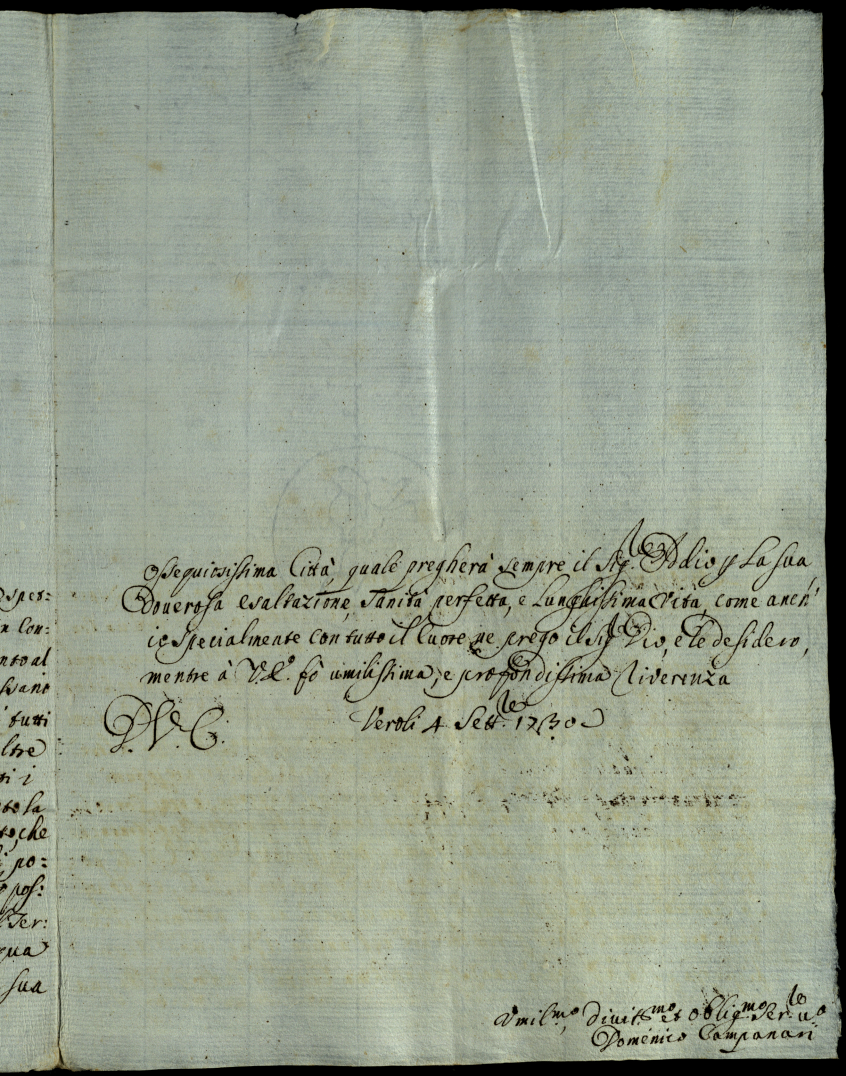 spet:
n Con:
nto al
ssano
tutti
ltre
ti i
to la
to, che
i, po:
pos:
Ser:
qua
sua
ossequiosissima Città, quale pregherà sempre il Sig.re Iddio p la sua
Doverosa esaltazione, Sanità perfetta, e Lunghissima Vita, come anch'
io specialmente con tutto il Cuore ne prego il Sig.re Dio, e le desidero,
mentre à V.E. fò umilissima, e profondissima Riverenza
D. V. E. Veroli 4 Sett.re 1730
Umil.mo, Divit.mo et oblig.mo Ser.re
Domenico Campanari